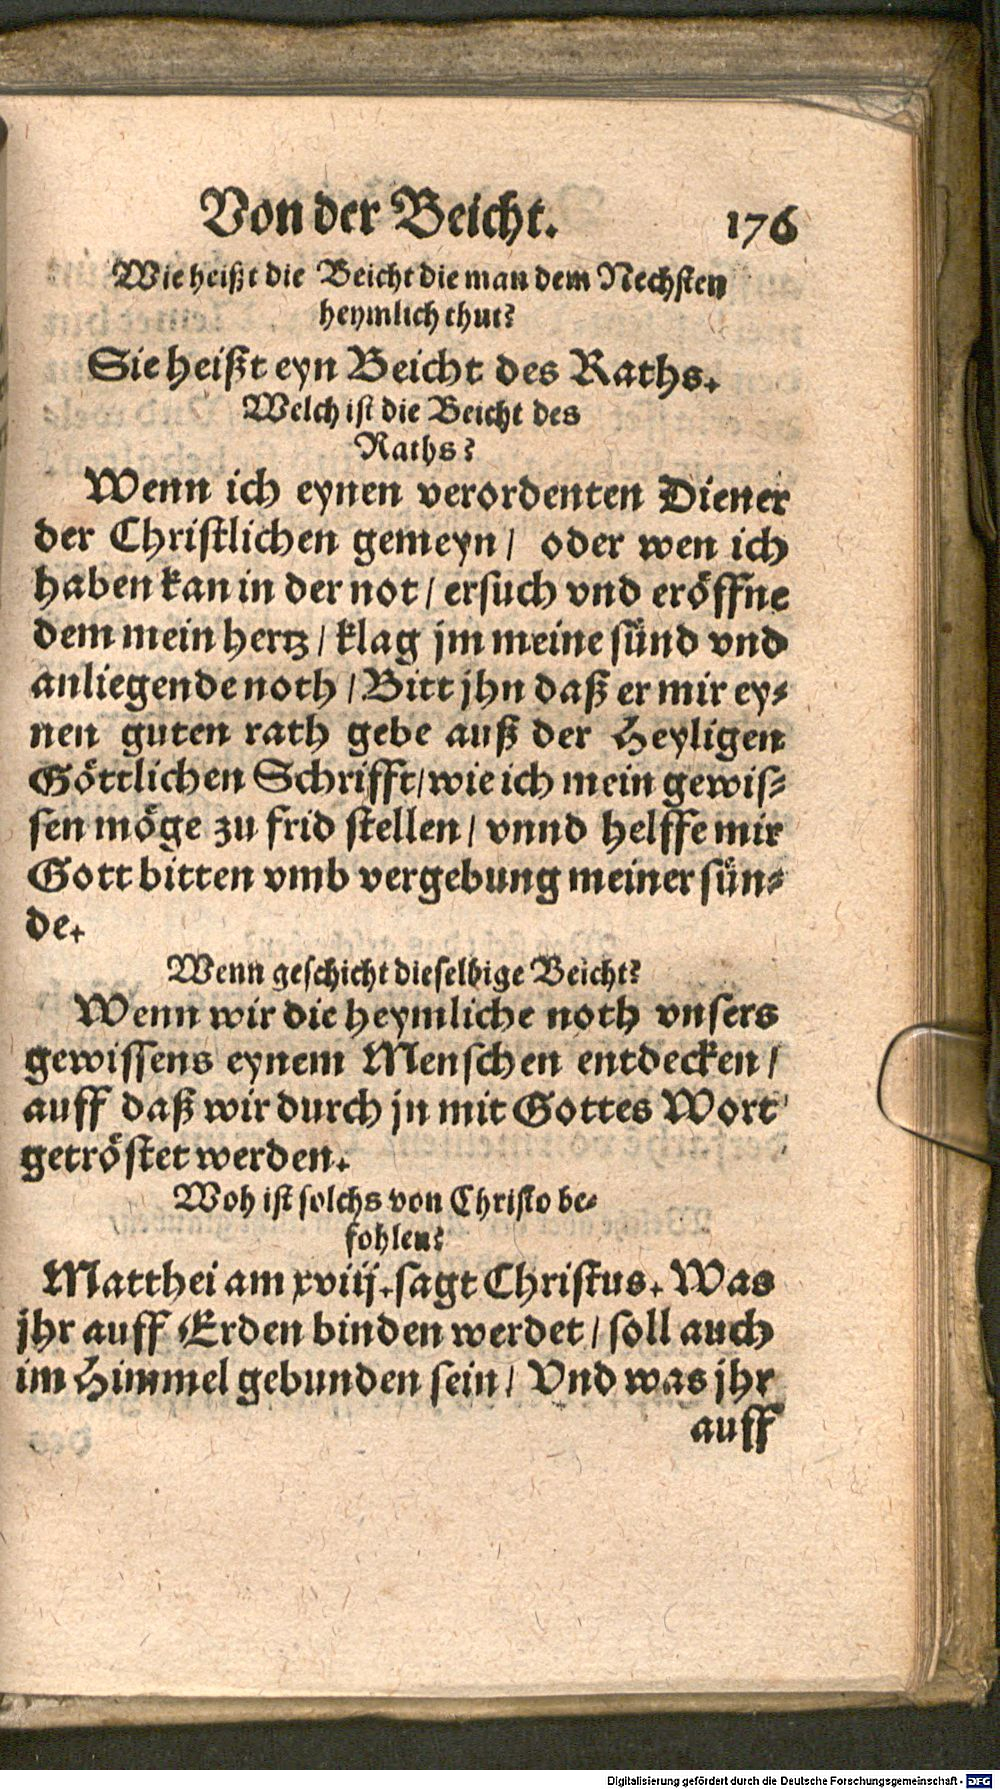 Von der Beicht. 176
Wie heißt die Beicht die man dem Nechsten
heymlich thut?
Sie heißt eyn Beicht des Raths.
Welch ist die Beicht des
Raths?
Wenn ich eynen verordenten Diener
der Christlichen gemeyn / oder wen ich
haben kan in der not / ersuch vnd eröffne
dem mein hertz / klag jm meine sünd vnd
anliegende noth / Bitt jhn daß er mir ey⸗
nen guten rath gebe auß der Heyligen
Göttlichen Schrifft / wie ich mein gewis⸗
sen möge zu frid stellen / vnnd helffe mir
Gott bitten vmb vergebung meiner sün⸗
de.
Wenn geschicht dieselbige Beicht?
Wenn wir die heymliche noth vnsers
gewissens eynem Menschen entdecken /
auff daß wir durch jn mit Gottes Wort
getröstet werden.
Woh ist solchs von Christo be⸗
fohlen?
Matthei am xviij. sagt Christus. Was
jhr auff Erden binden werdet / soll auch
im Himmel gebunden sein / Vnd was jhr
auff
Digitalisierung gefördert durch die Deutsche Forschungsgemeinschaft - DFG